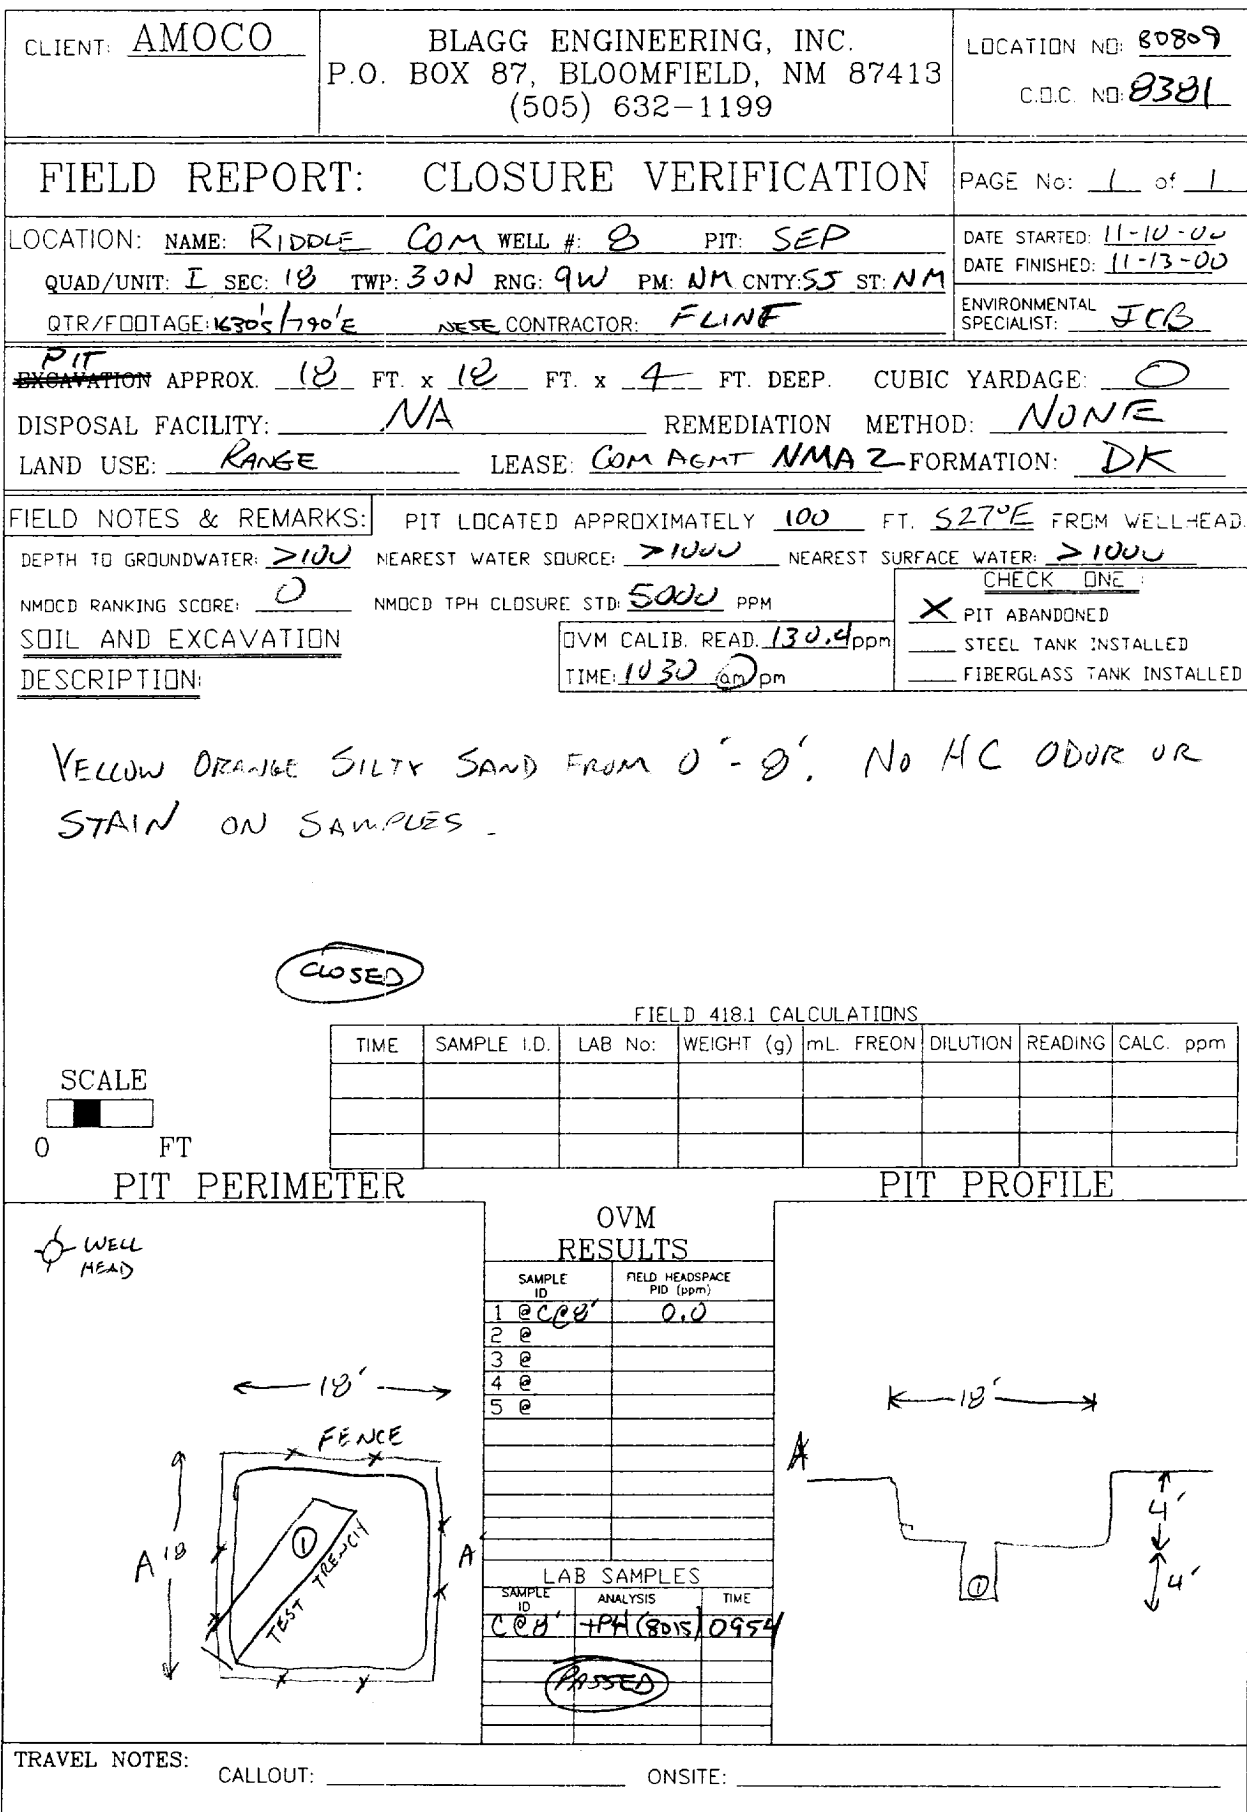 CLIENT: AMOCO
BLAGG ENGINEERING, INC.
P.O. BOX 87, BLOOMFIELD, NM 87413
(505) 632-1199
LOCATION NO: 80809
C.O.C. NO: 8381
FIELD REPORT: CLOSURE VERIFICATION
PAGE No: 1 of 1
LOCATION: NAME: RIDDLE COM WELL #: 8 PIT: SEP
QUAD/UNIT: I SEC: 18 TWP: 30N RNG: 9W PM: NM CNTY: SJ ST: NM
QTR/FOOTAGE: 1630'S/790'E NESE CONTRACTOR: FLINT
DATE STARTED: 11-10-00
DATE FINISHED: 11-13-00
ENVIRONMENTAL
SPECIALIST: JCB
PIT
EXCAVATION APPROX. 18 FT. x 18 FT. x 4 FT. DEEP. CUBIC YARDAGE: 0
DISPOSAL FACILITY: NA REMEDIATION METHOD: NONE
LAND USE: RANGE LEASE: COM AGMT NMA 2 FORMATION: DK
FIELD NOTES & REMARKS: PIT LOCATED APPROXIMATELY 100 FT. S27°E FROM WELLHEAD.
DEPTH TO GROUNDWATER: >100 NEAREST WATER SOURCE: >1000 NEAREST SURFACE WATER: >1000
NMOCD RANKING SCORE: 0 NMOCD TPH CLOSURE STD: 5000 PPM
CHECK ONE:
X PIT ABANDONED
STEEL TANK INSTALLED
FIBERGLASS TANK INSTALLED
SOIL AND EXCAVATION
DESCRIPTION:
OVM CALIB. READ. 130.4 ppm
TIME: 1030 am pm
YELLOW ORANGE SILTY SAND FROM 0'-8'. NO HC ODOR OR
STAIN ON SAMPLES.
CLOSED
FIELD 418.1 CALCULATIONS
TIME SAMPLE I.D. LAB No: WEIGHT (g) mL. FREON DILUTION READING CALC. ppm
SCALE
0 FT
PIT PERIMETER
PIT PROFILE
WELL
HEAD
18'
FENCE
A 18 A'
1
TEST TRENCH
OVM
RESULTS
SAMPLE ID FIELD HEADSPACE PID (ppm)
1 @ C@8' 0.0
2 @
3 @
4 @
5 @
LAB SAMPLES
SAMPLE ID ANALYSIS TIME
C@8' TPH (8015) 0954
PASSED
18'
A
4'
1
4'
TRAVEL NOTES: CALLOUT: ONSITE: